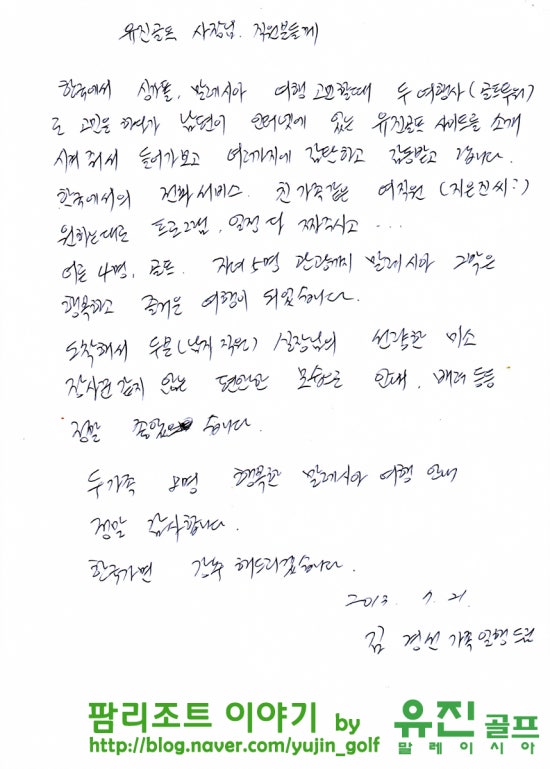 유진골프 사장님, 직원분들께
한국에서 싱가폴, 말레시아 여행 고민할때 두 여행사(골프투어)
로 고민을 하다가 남편이 인터넷에 있는 유진골프 사이트를 소개
시켜 줘서 들어가보고 여기까지에 감탄하고 감동받고 갑니다.
한국에서의 전화 서비스. 친가족같은 여직원 (지은진씨:)
원하는대로 프로그램, 일정 다 짜주시고 ...
어른 4명, 골프. 자녀 5명 관광까지 말레시아
행복하고 즐거운 여행이 되었습니다.
도착해서 두분(남자 직원) 실장님의 선량한 미소
장사꾼 같지 않은 편안한 모습으로 안내, 배려 등등
정말 좋았습니다.
두가족 명 행복한 말레시아 여행 안내
정말 감사합니다.
한국가면 해드리겠습니다.
2013. 7. 21.
김경선 가족일행드림
팜리조트 이야기 by 유진골프
http://blog.naver.com/yujin_golf 말레이시아